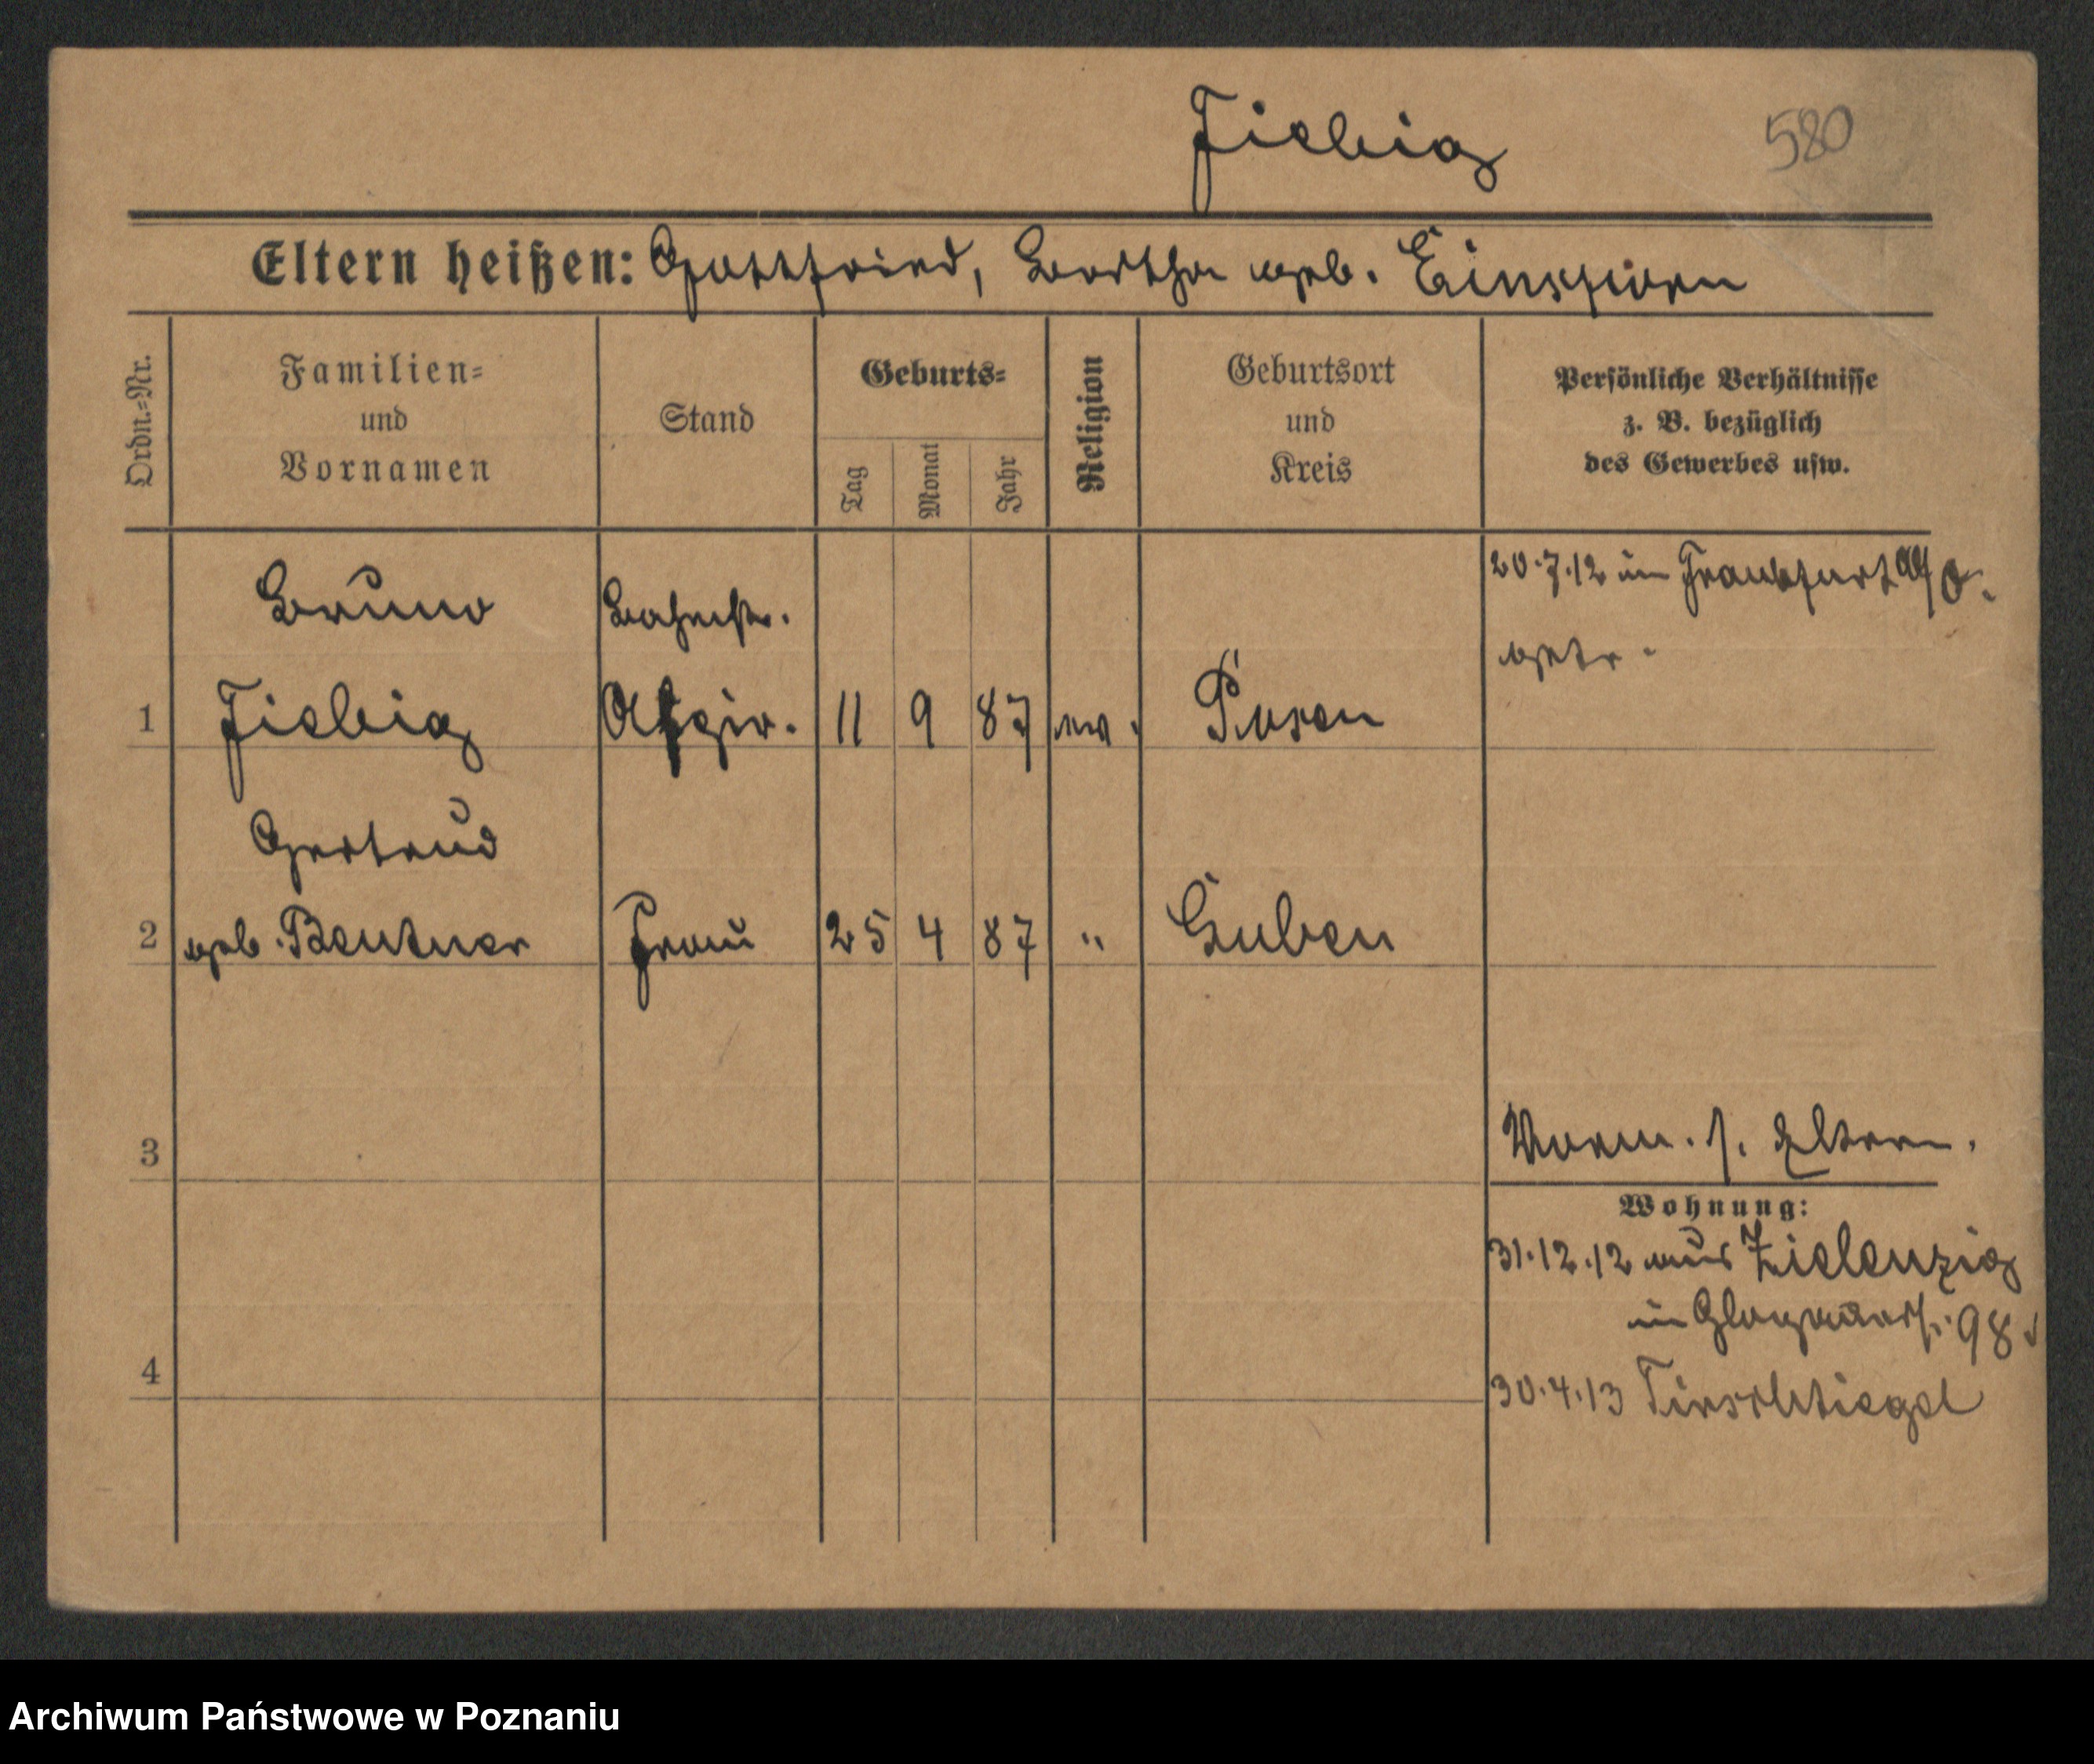 Fiebig
580
Eltern heißen: Gottfried, Bertha geb. Einsporn
Ordn.-Nr.
Familien-
und
Vornamen
Stand
Geburts-
Tag
Monat
Jahr
Religion
Geburtsort
und
Kreis
Persönliche Verhältnisse
z. B. bezüglich
des Gewerbes usw.
1
Bruno
Fiebig
Bahnstr.
11 9 87
Posen
20.7.12 in Frankfurt a/O.
getr.
2
Gertrud
geb. Bentner
Frau
25 4 87
"
Guben
3
Vorm. s. Eltern.
Wohnung:
31.12.12 aus Zielenzig
in Glogauerstr. 98
4
30.4.13 Tirschtiegel
Archiwum Państwowe w Poznaniu